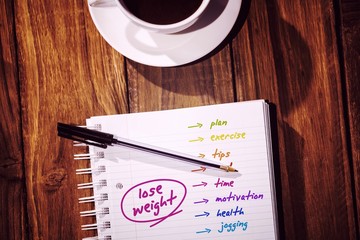 → plan
→ exercise
→ tips
→ time
→ motivation
→ health
→ jogging
lose
weight